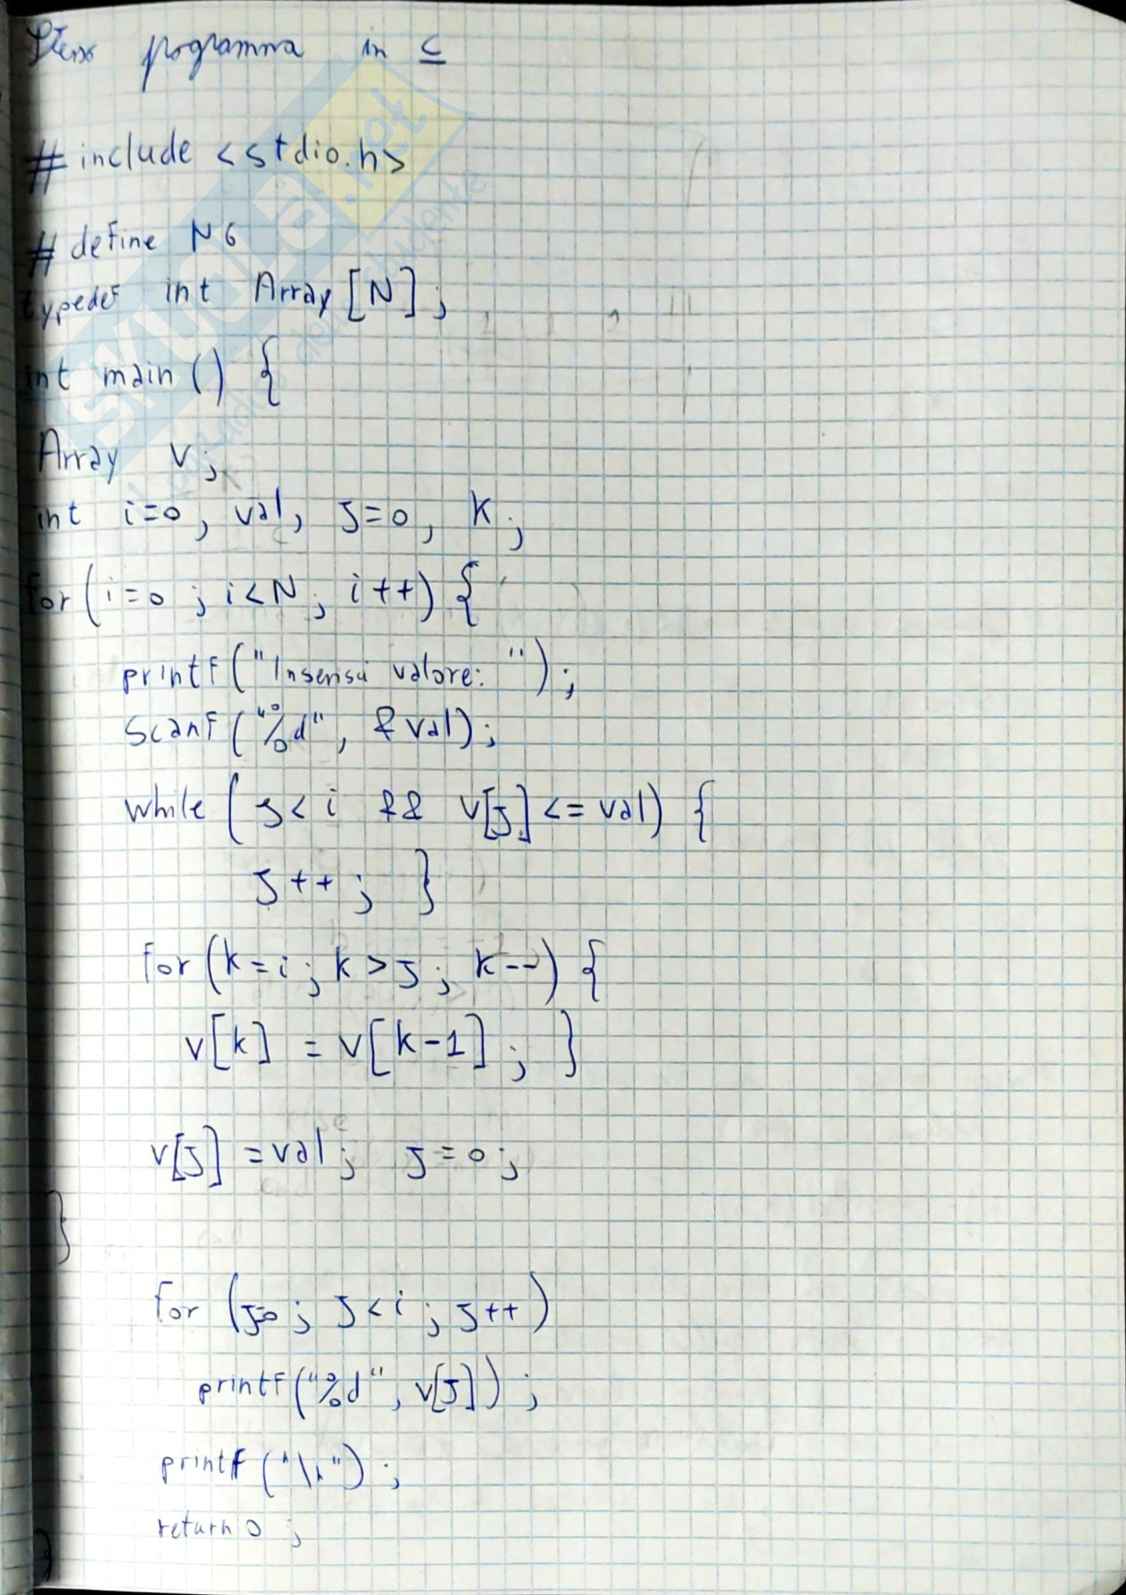 Stesso programma in C
# include <stdio.h>
# define N 6
typedef int Array [N];
int main () {
Array v;
int i=0, val, j=0, k;
for (i=0; i<N; i++) {
printf ("Inserisci valore: ");
scanf ("%d", &val);
while (j<i && v[j]<=val) {
j++; }
for (k=i; k>j; k--) {
v[k] = v[k-1]; }
v[j] = val; j=0;
}
for (j=0; j<i; j++)
printf("%d", v[j]);
printf ("\n");
return 0;
}